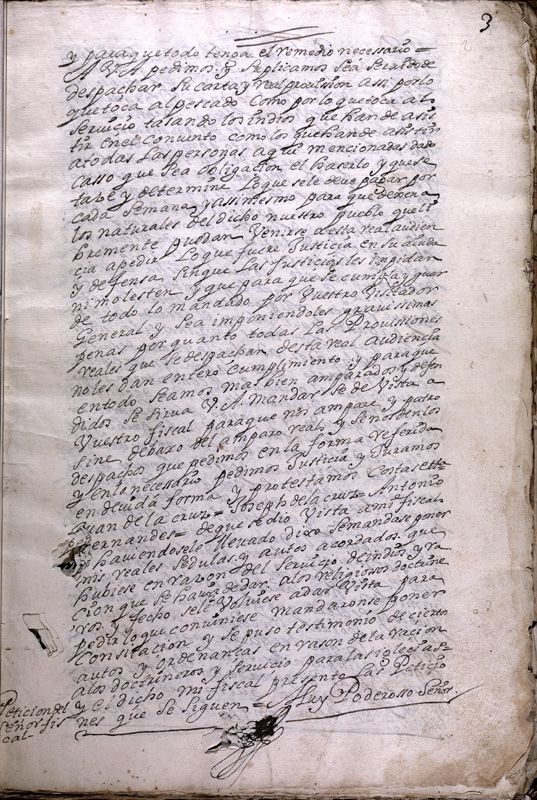 3
y para que todo tenga el remedio necessario =
A V. A. pedimos y suplicamos sea servido de
despachar su carta y real provision assi por lo
que toca al pescado como por lo que toca al
servicio tasando los indios que han de asis
tir en el convento como los que han de asistir
a todas las personas aqui mencionadas dado
casso que sea obligacion el haserlo y que se
tase y determine lo que se le deve pagar por
cada semana y assimesmo para que
los naturales del dicho nuestro pueblo que li
bremente puedan venirse a esta real audien
cia a pedir lo que fuere justicia en su aiuda
y defensa sin que las justicias les impidan
ni molesten y que para que se cumpla y guar
de todo lo mandado por vuestro visitador
general y sea imponiendoles gravissimas
penas por quanto todas las provissiones
reales que se despachan desta real audiencia
no les dan entero cumplimiento y para que
en todo seamos mas bien amparados y defen
didos se sirva V. A. mandar se de vista a
vuestro fiscal para que nos ampare y patro
sine debaxo del amparo real y se nos den los
despachos que pedimos en la forma referida
y en lo necesario pedimos justicia y juramos
en devida forma y protestamos costas etta
Juan de la cruz = Joseph de la cruz = Antonio
Hernandes = de que se dio vista a mi fiscal
y haviendosele llevado dixo se mandase poner
mis reales sedulas y autos acordados que
hubiese en razon del servicio de indios y ra
cion que se havia de dar a los religiosos doctrine
ros y fecho se le volviese a dar vista para
pedir lo que conviniese mandaronse poner
con sitacion y se puso testimonio de cierto
autos y ordenansas en rason de la racion
a los doctrineros y servicio para las iglecias =
y el dicho mi fiscal presento las peticio
nes que se siguen = Muy Poderosso Señor
Peticion del
señor fis
cal